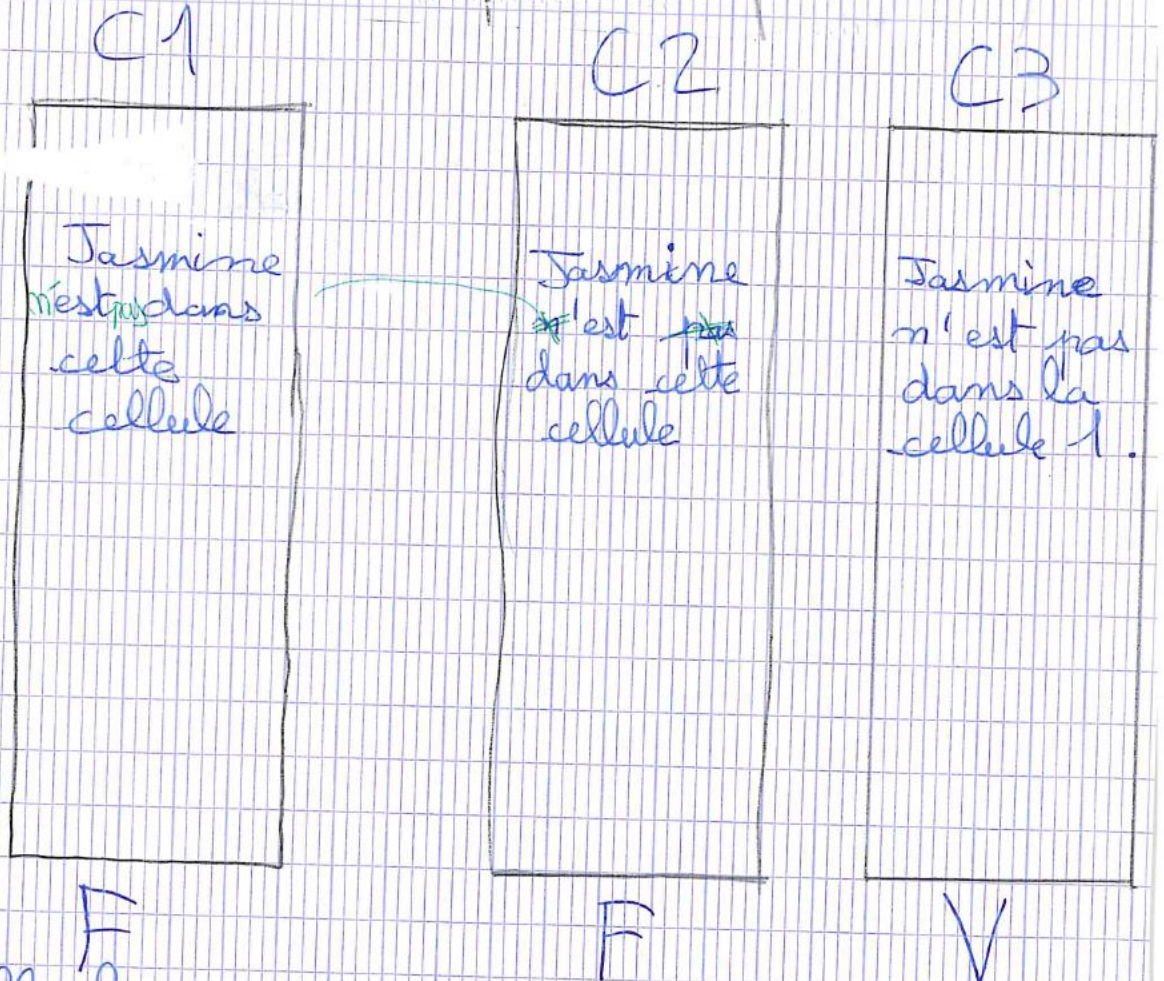 C1
C2
C3
Jasmine
n'est pas dans
cette
cellule
Jasmine
n'est pas
dans cette
cellule
Jasmine
n'est pas
dans la
cellule 1.
F
F
V